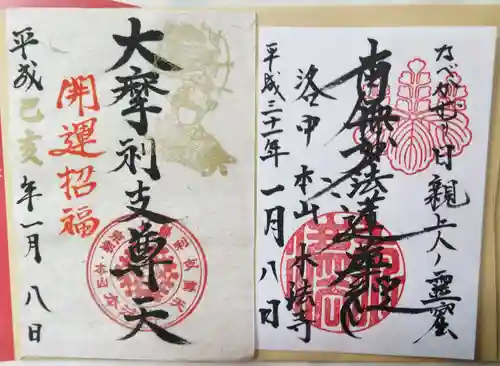 大摩利支尊天
開運招福
平成己亥年一月八日
なべかむり日親上人ノ霊窟
南無妙法蓮華経
洛中本山本法寺
平成三十一年一月八日